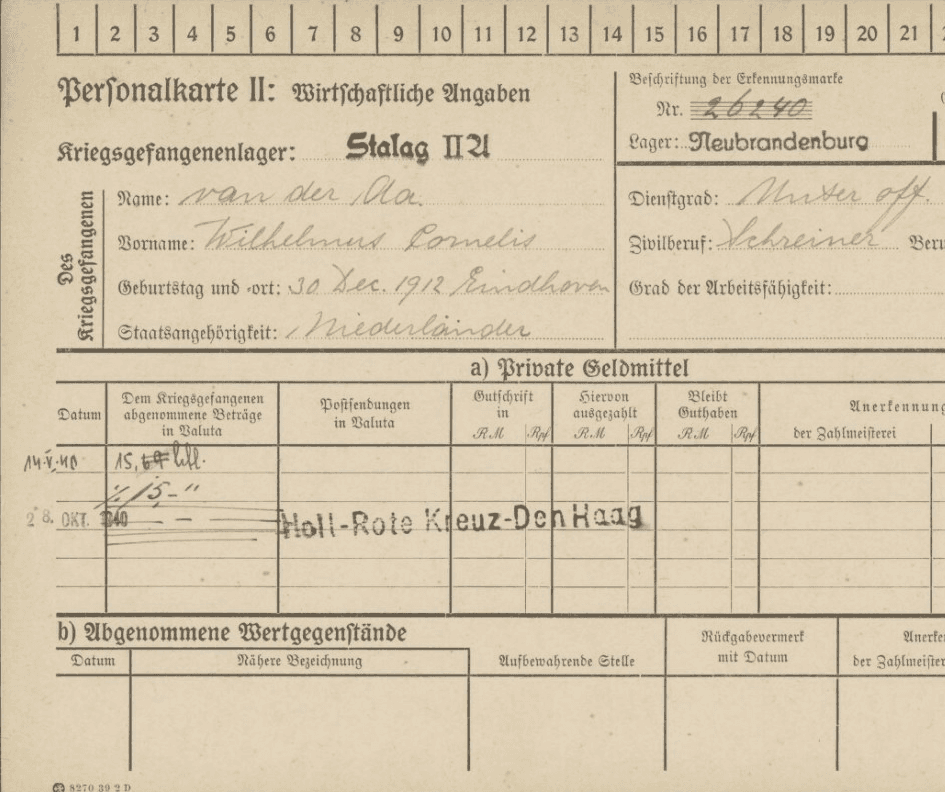 1 2 3 4 5 6 7 8 9 10 11 12 13 14 15 16 17 18 19 20 21
Personalkarte II: Wirtschaftliche Angaben
Kriegsgefangenenlager: Stalag II A
Beschriftung der Erkennungsmarke
Nr. 26240
Lager: Neubrandenburg
Des Kriegsgefangenen
Name: van der Aa.
Vorname: Wilhelmus Cornelis
Geburtstag und -ort: 30 Dec. 1912 Eindhoven
Staatsangehörigkeit: Niederländer
Dienstgrad: Unter off.
Zivilberuf: Schreiner
Grad der Arbeitsfähigkeit:
a) Private Geldmittel
Datum
Dem Kriegsgefangenen
abgenommene Beträge
in Valuta
Postsendungen
in Valuta
Gutschrift
in
RM Rpf
Hiervon
ausgezahlt
RM Rpf
Bleibt
Guthaben
RM Rpf
Anerkennung
der Zahlmeisterei
14.V.40 15,
15-"
28. OKT. 1940 Holl-Rote Kreuz-Den Haag
b) Abgenommene Wertgegenstände
Datum
Nähere Bezeichnung
Aufbewahrende Stelle
Rückgabevermerk
mit Datum
der Zahlmeisterei
8270 39 2 D